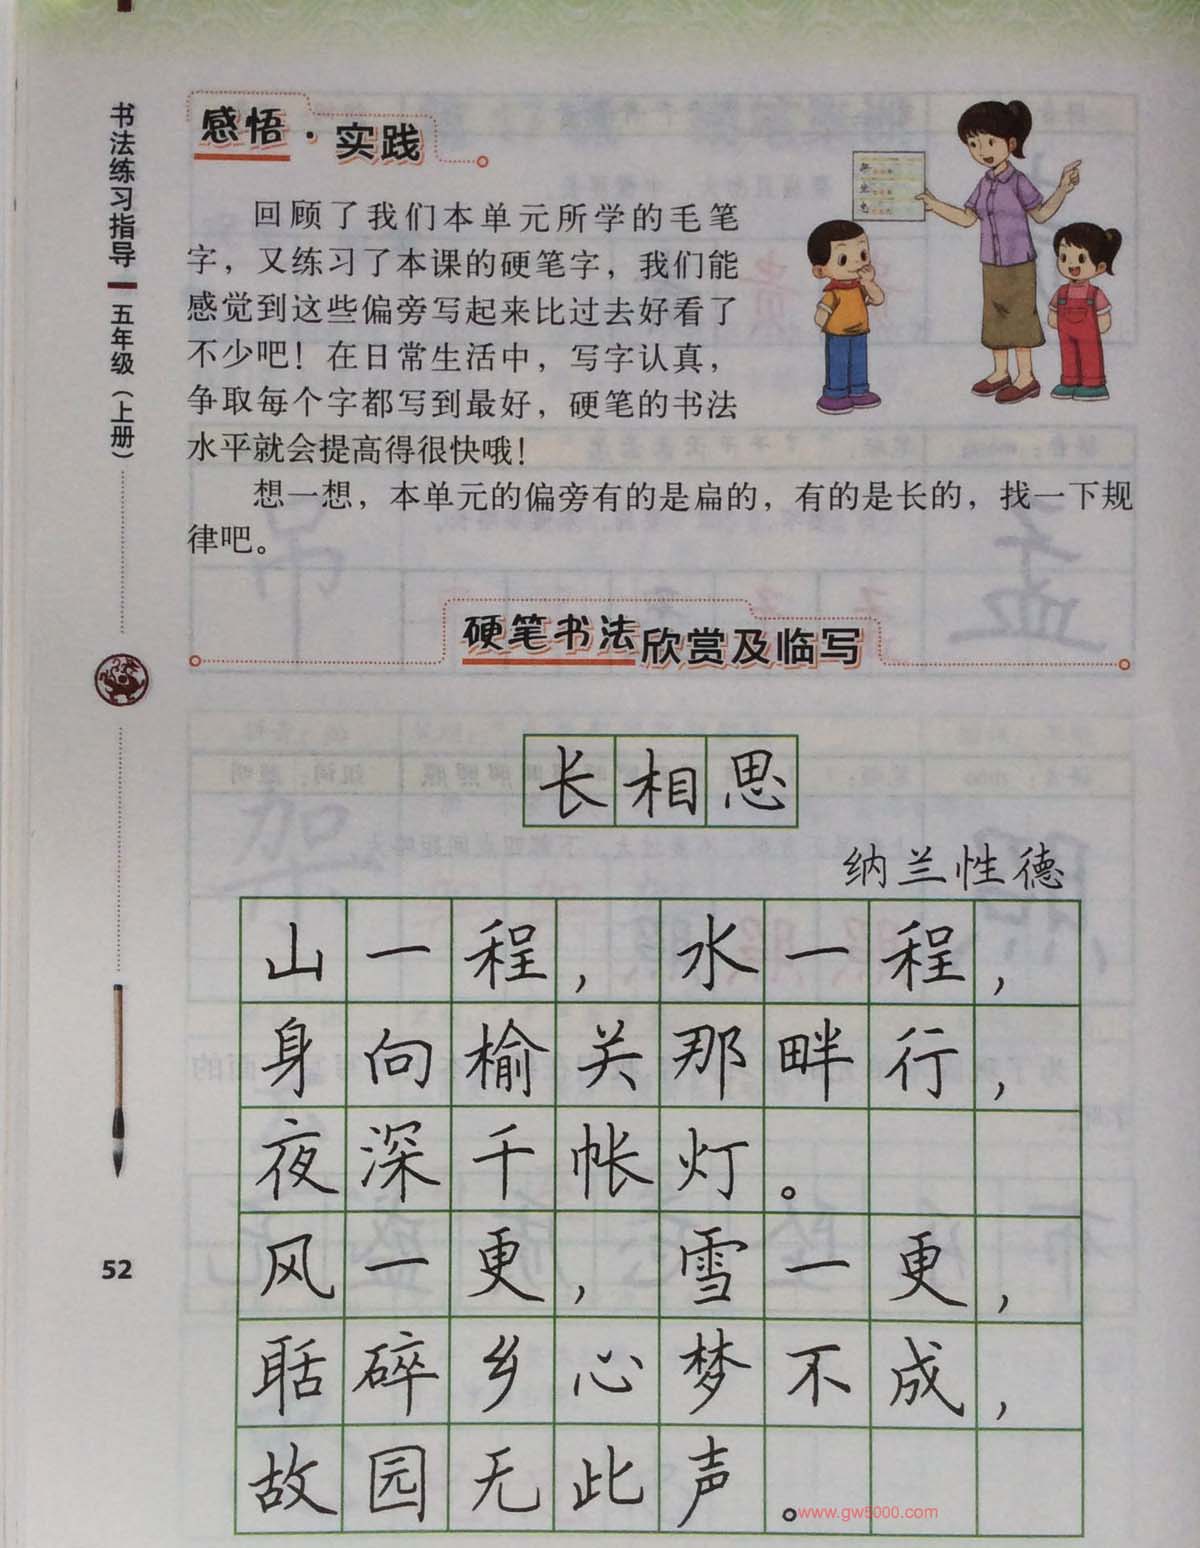 书法练习指导 五年级（上册）
感悟·实践
回顾了我们本单元所学的毛笔
字，又练习了本课的硬笔字，我们能
感觉到这些偏旁写起来比过去好看了
不少吧！在日常生活中，写字认真，
争取每个字都写到最好，硬笔的书法
水平就会提高得很快哦！
想一想，本单元的偏旁有的是扁的，有的是长的，找一下规
律吧。
硬笔书法欣赏及临写
长相思
纳兰性德
山一程，水一程，
身向榆关那畔行，
夜深千帐灯。
风一更，雪一更，
聒碎乡心梦不成，
故园无此声。
52
www.gw5000.com